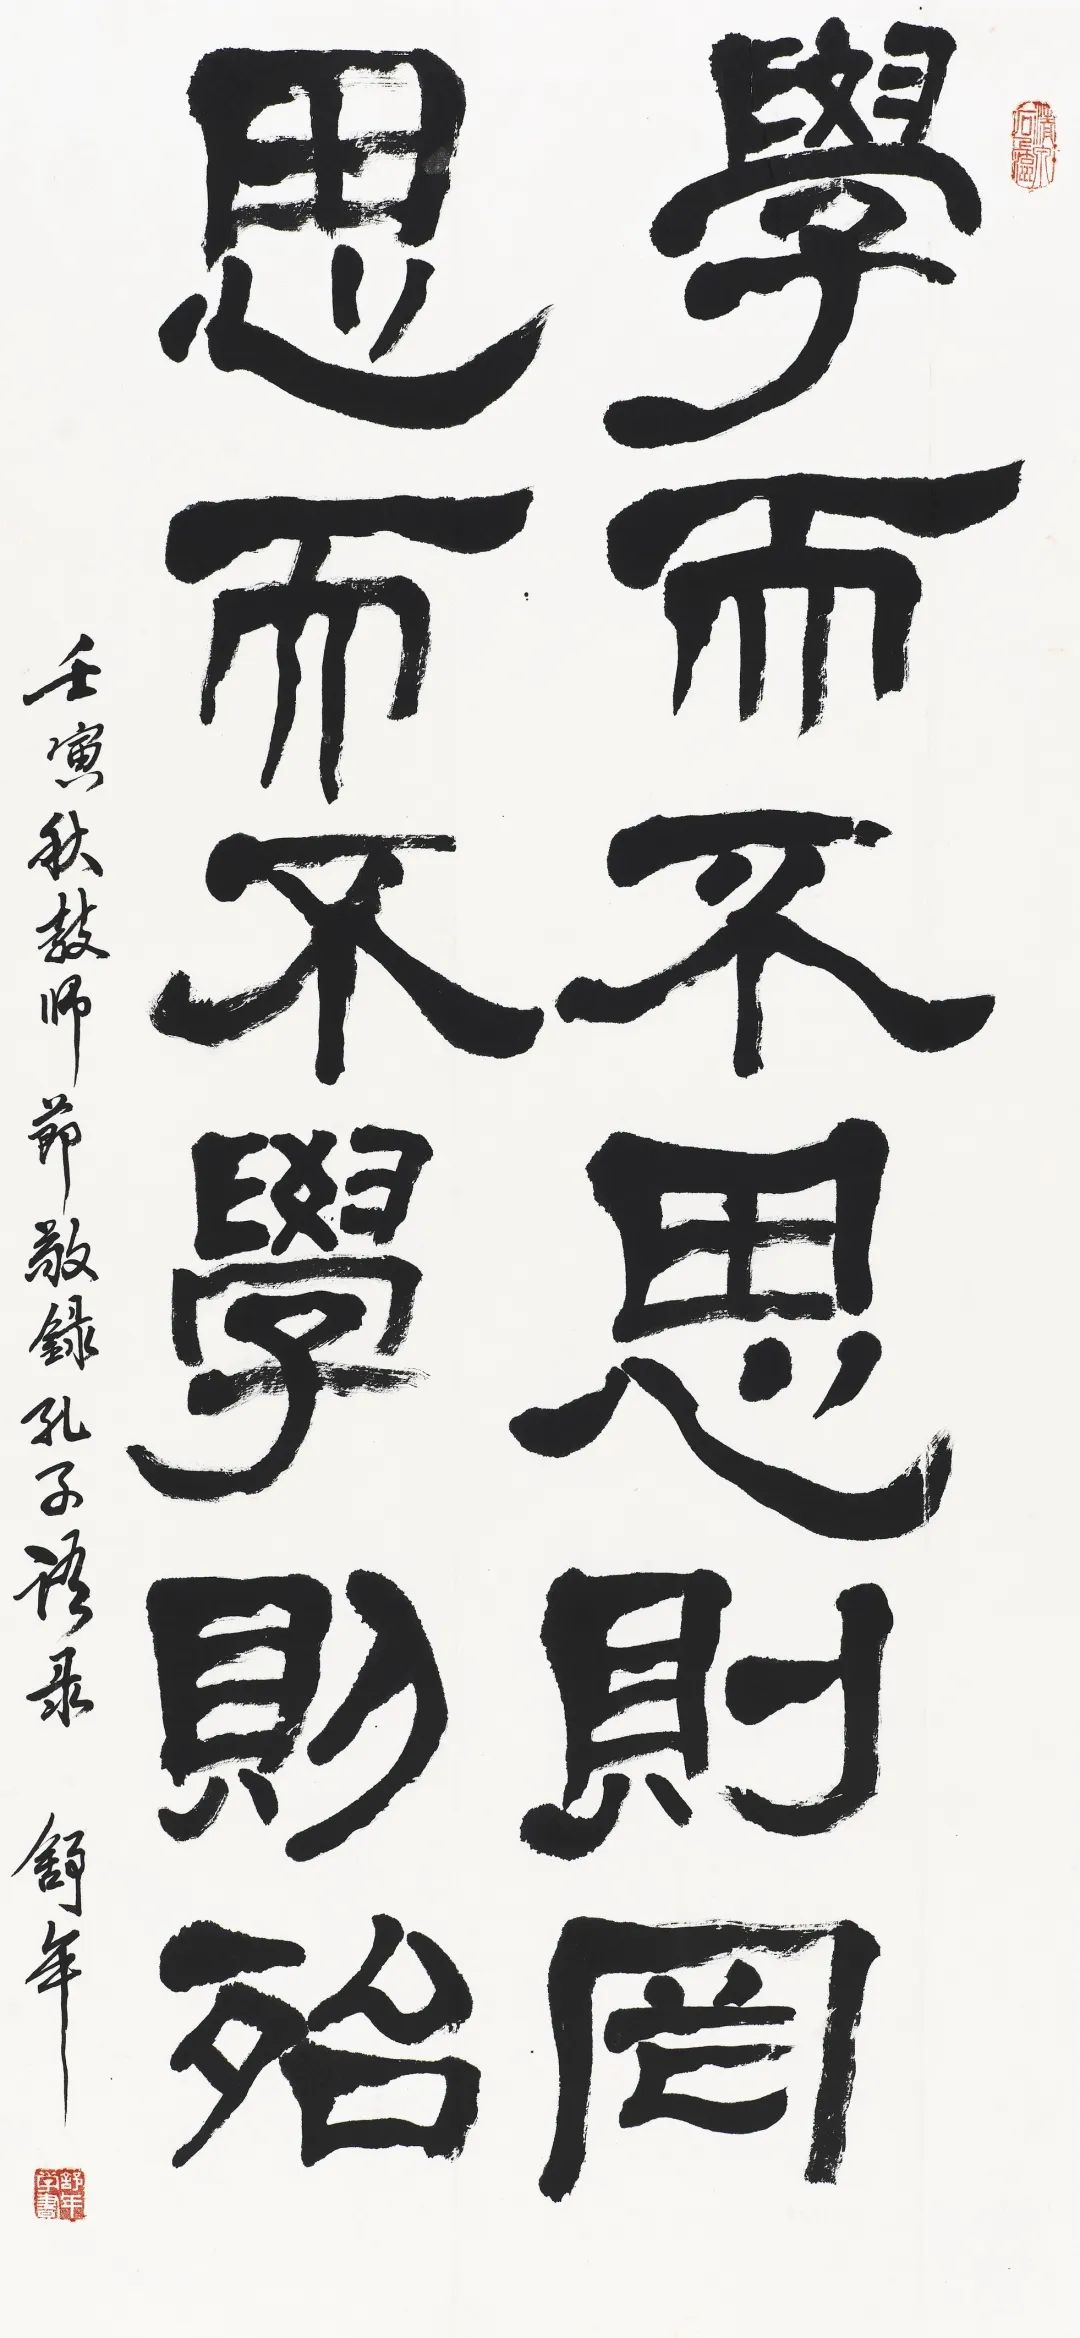 學而不思則罔
思而不學則殆
壬寅秋教師節敬錄孔子语录 舒年
舒年学書